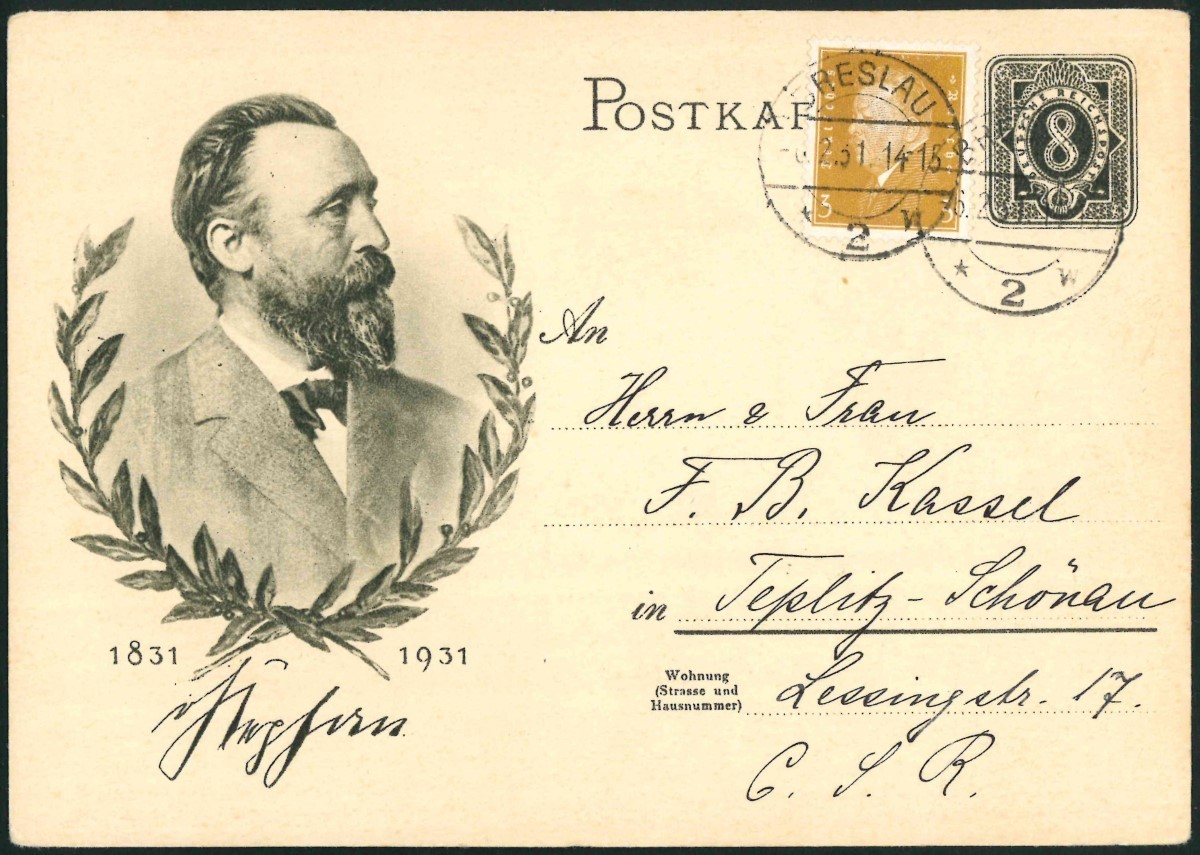 POSTKAR
BRESLAU
2.31. 14-15
2 w
3
DEUTSCHE REICHSPOST
8
2 w
An
Herrn & Frau
F. B. Kassel
in Teplitz-Schönau
Wohnung
(Strasse und
Hausnummer)
Lessingstr. 17.
C. S. R.
1831 1931
Stephan